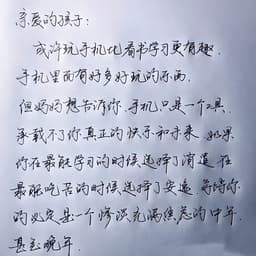 亲爱的孩子:
或许玩手机比看书学习更有趣.
手机里面有好多好玩的东西.
但妈妈想告诉你,手机只是一个工具,
承载不了你真正的快乐和未来.如果
你在最能学习的时候选择了消遣,在
最能吃苦的时候选择了安逸,等待你
的必定是一个惨淡充满焦急的中年.
甚至晚年.